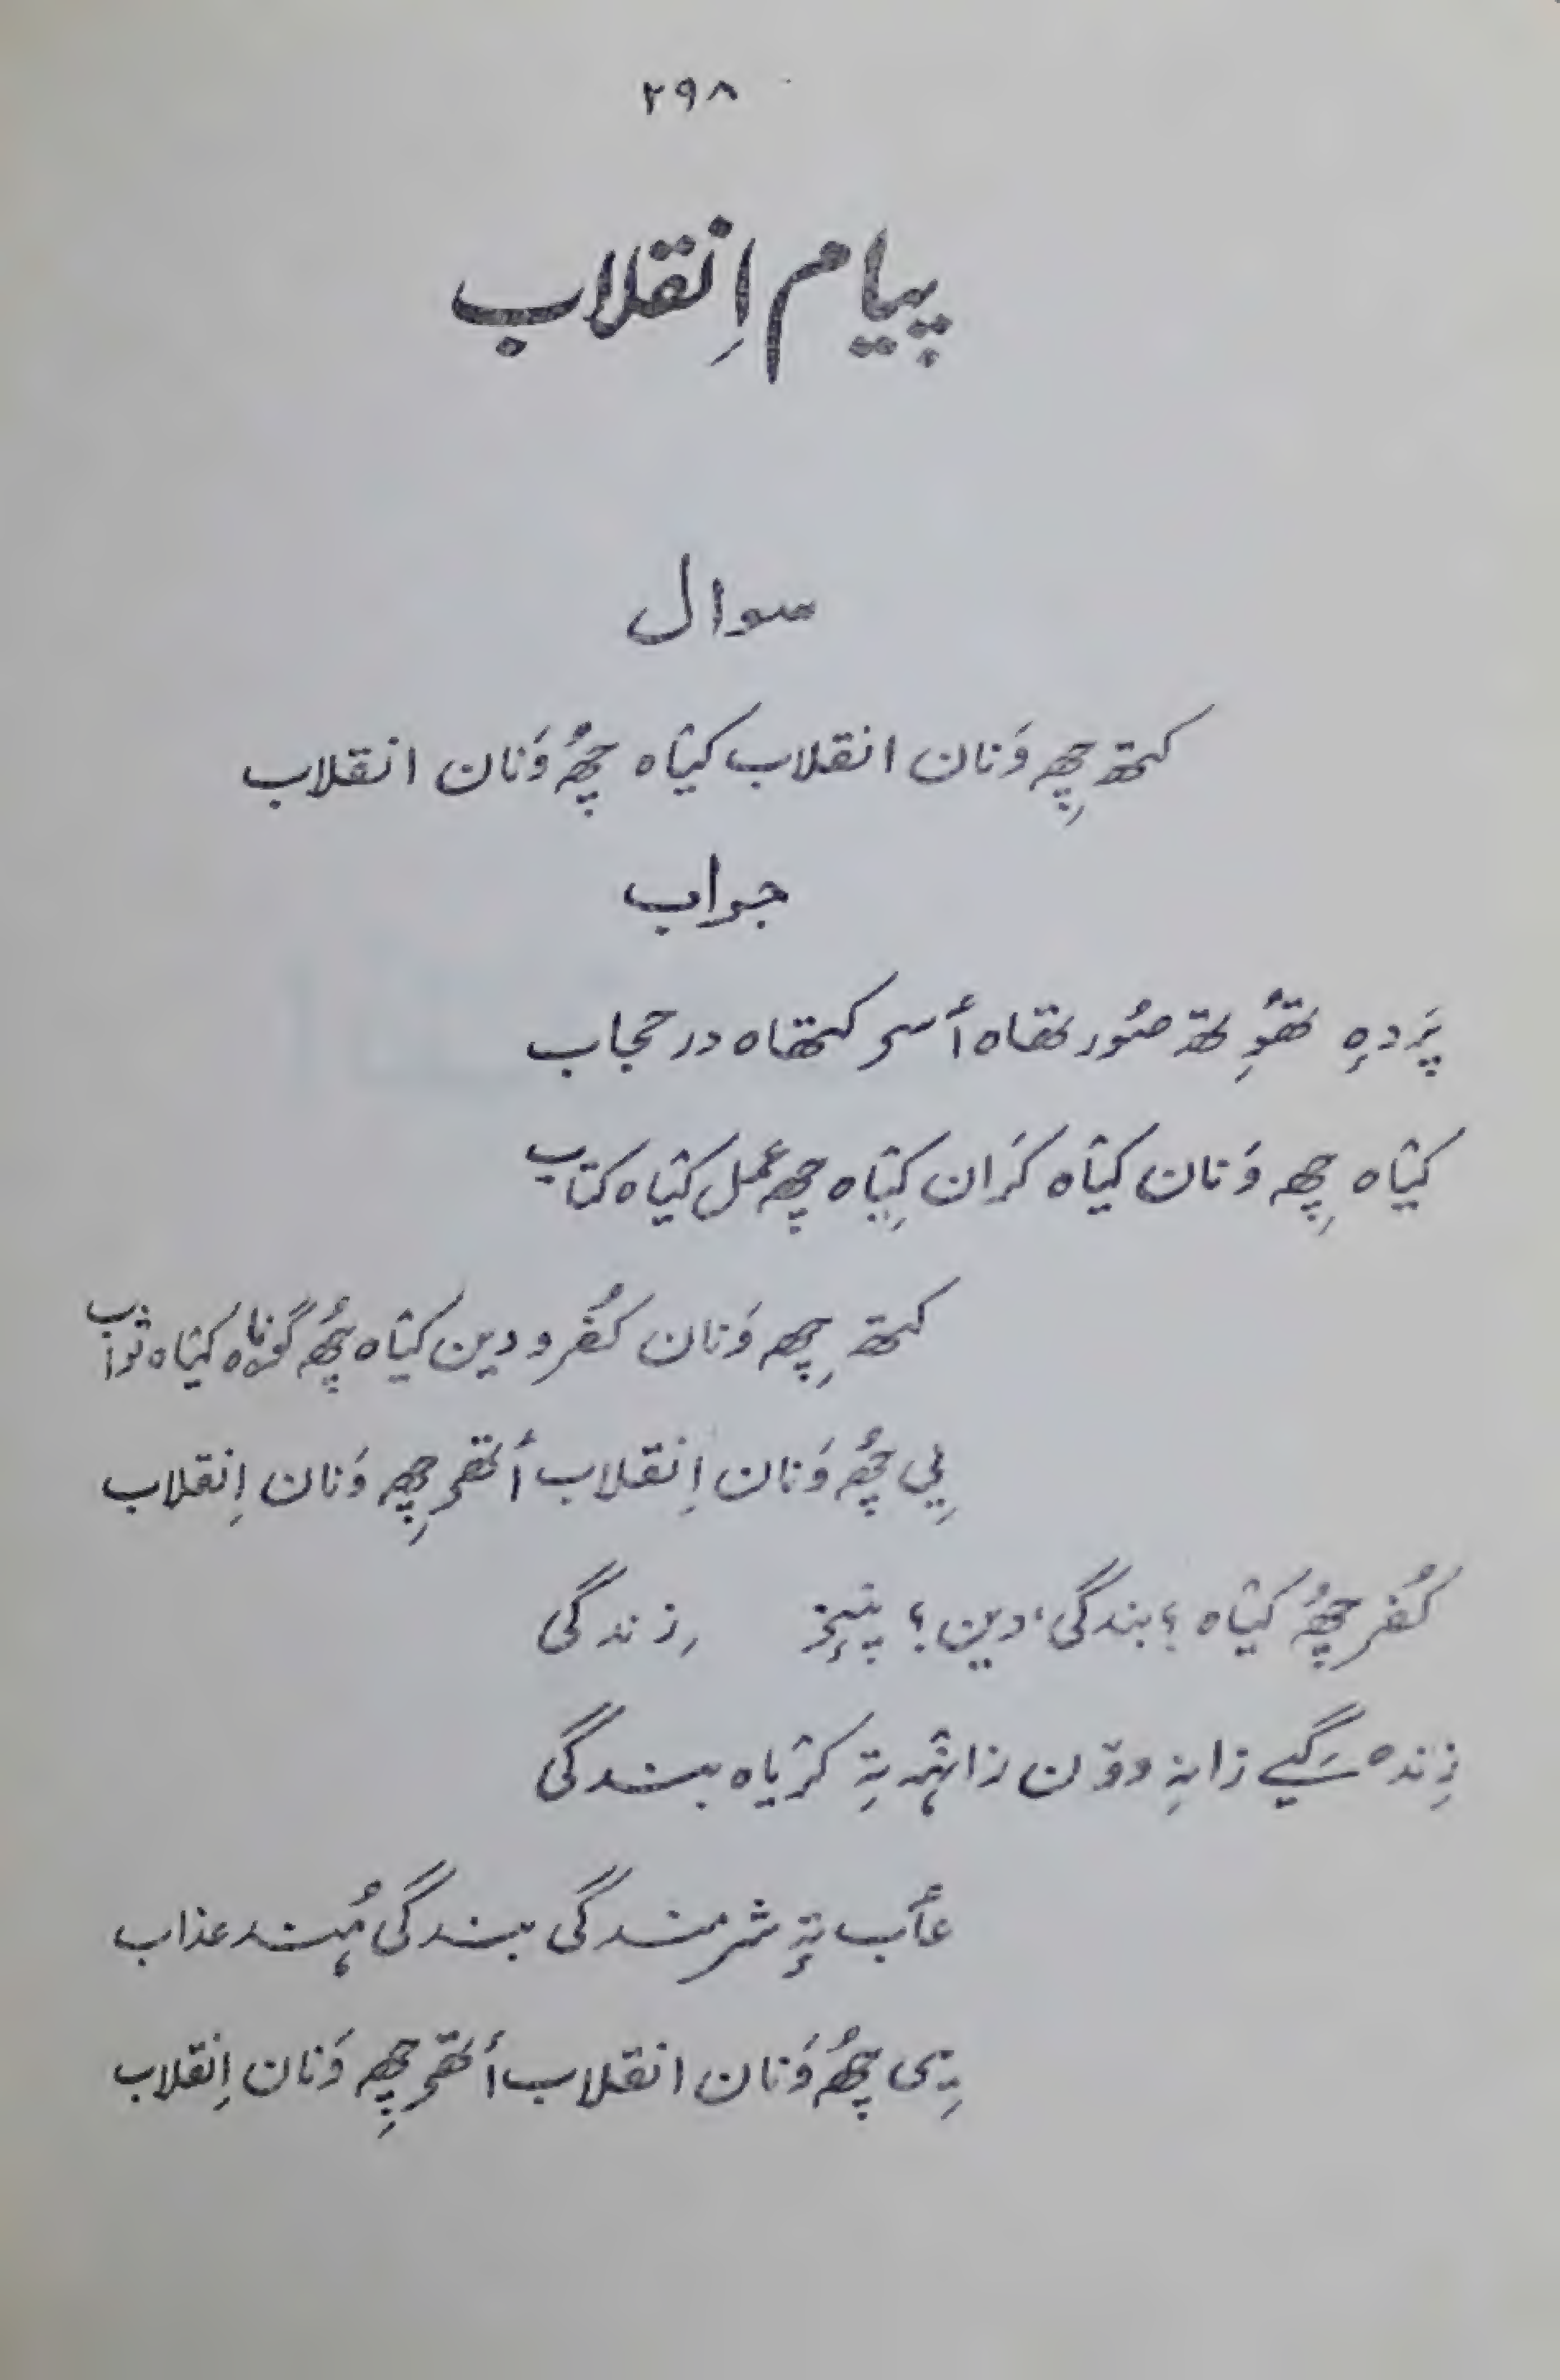 ۲۹۸
پیام اِنقلاب
سوال
کتھ چھِ وَنان انقلاب کیٛاہ چھُ وَنان انقلاب
جواب
پَردہِ تھوِ تھ صوٗرتھاہ أسر کتھاہ در حجاب
کیٛاہ چھِ وَنان کیٛاہ کَران کیٛاہ چھ عمل کیٛاہ کتاب
کتھ چھِ وَنان کُفر و دین کیٛاہ چھُ گۄناہ کیٛاہ ثواب
یِی چھُ وَنان اِنقلاب أتھر چھِ وَنان اِنقلاب
کُفر چھُ کیٛاہ ؟ بندگی، دین ؟ پنِز زِندگی
زِندہ سَگیے زانہِ دوٚن زانٛہہ تہِ کرٛیاہ بندگی
عأب تہٕ شرمندگی بندگی ہُند عذاب
یِی چھُ وَنان انقلاب أتھر چھِ وَنان اِنقلاب